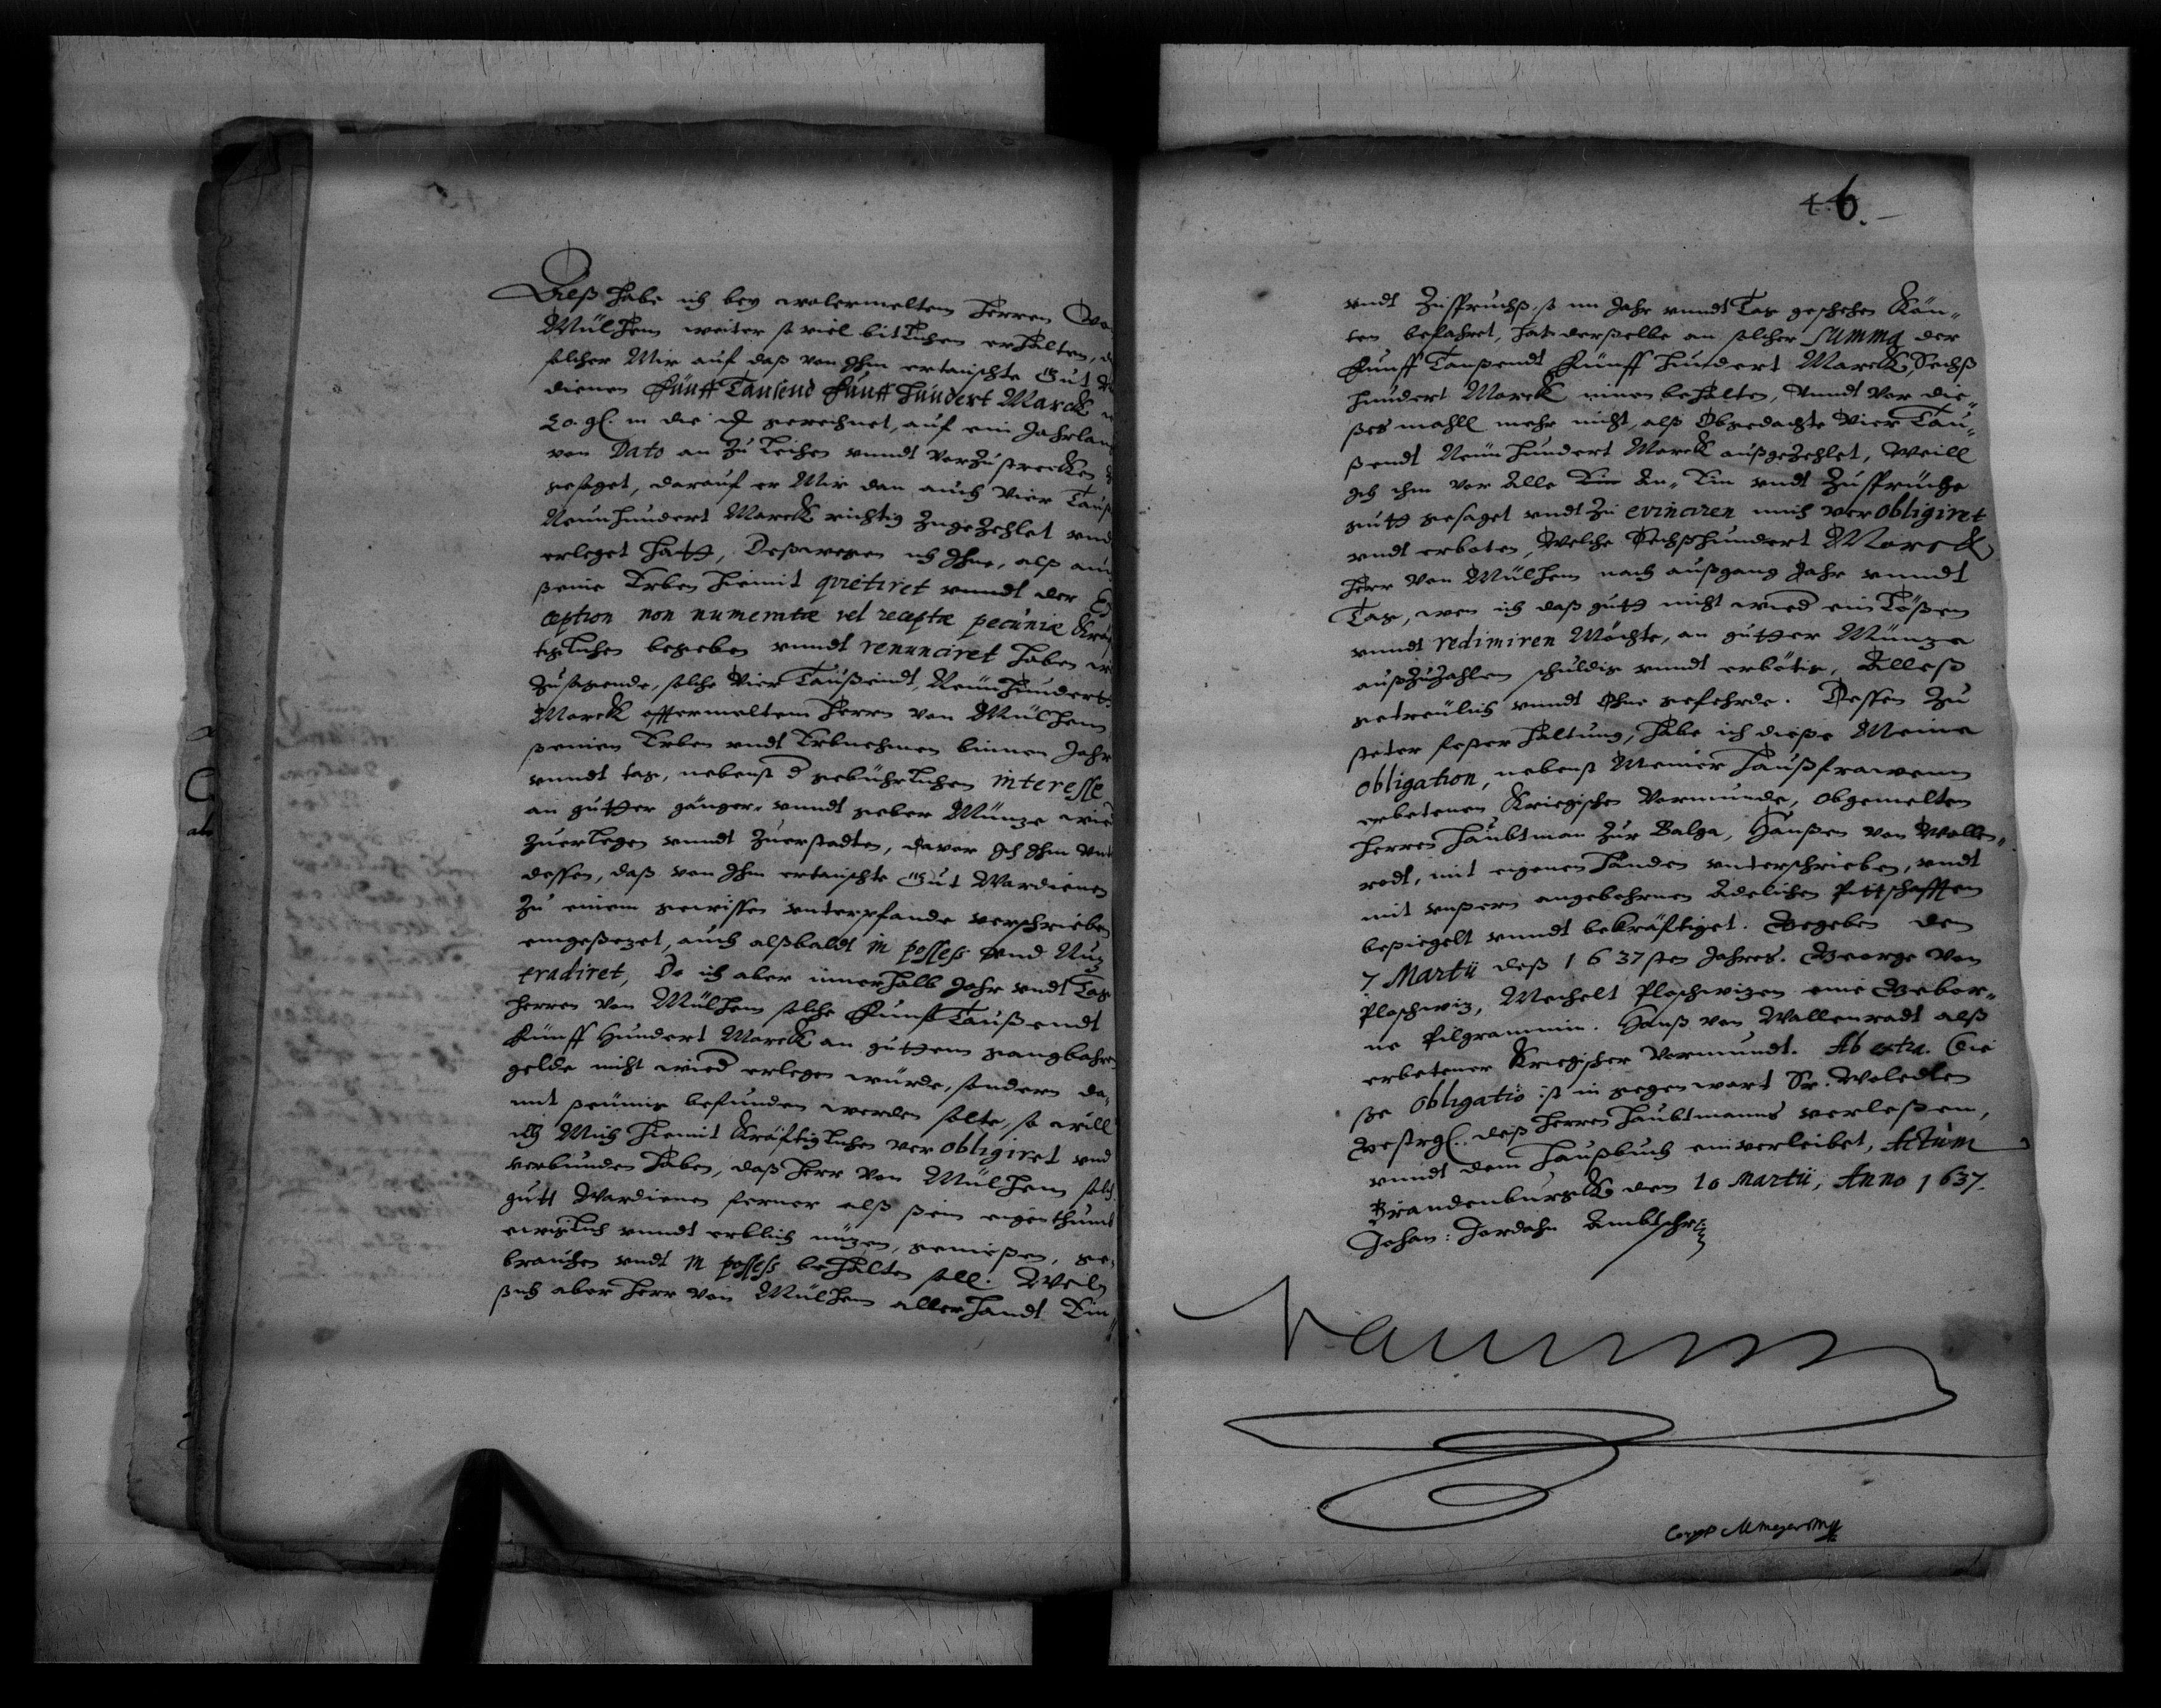 Alß habe ich bey wolermeltem Herren Vo
Mülhem weiter so viel bitlichen erhalten, d
solcher Mir auf daß von Ihm ertauschte Gut
dienen Fünff Tausend Fünff Hundert Marck
20. gl. in die gerechnet, auf ein Jahrlang
von Dato an zu leihen vundt vorzustrecken
gesaget, darauf er Mir dan auch Vier Tauß
Neunhundert Marck richtig zugezehlet vnd
erleget hatt, Deßwegen ich Ihne, alß auch
seine Erben hiemit quietiret vundt der Ex
ception non numeratæ vel receptæ pecuniæ Kräf
tiglichen begeben vundt renunciret haben
Zusagende, solche Vier Taußendt, Neunhundert
Marck offtermeltem Herrn von Mülhem
seinen Erben vndt Erbnehmen binnen Jahr
vundt tag, nebenst d gebührlichen interesse
an gutter gänger vundt geber Münze wied
zuerlegen vundt zuerstadten, davor Ich Ihm vnt
dessen, daß von Ihm ertauschte Gut Wardienen
zu einem gewissen vnterpfande verschrieben
eingesezet, auch alßbaldt in possess vnd Nuz
tradiret, Da ich aber innerhalb Jahr vndt Tag
Herren von Mülhem solche Funf Taußendt
Fünff Hundert Marck an guttem gangbahren
gelde nicht wied erlegen würde, sondern da„
mit seümig befunden werden solte, so will
ich Mich hiemit Kräftiglichen verobligiret vnd
verbunden haben, daß Herr von Mülhem solch
gutt Wardienen ferner alß sein eigenthumb
ewiglich vundt erblich nüzen, genießen, ge„
brauchen vndt in possess behalten soll. Weiln
sich aber Herr von Mülhem allerhandt Ein„

46.
vndt Zusspruchß, so im Jahr vundt Tag geschehen Kön„
ten befahret, hat derselbe an solcher summa der
Funff Taußendt Fünff Hundert Marck, Sechß
hundert Marck innen behalten, Vundt vor die„
ses mahll mehr nicht, alß Obgedachte Vier Tau„
sendt Neun Hundert Marck außgezehlet, Weill
Ich ihm vor Alle Ein An„ Ein vndt Zusprüche
gutt gesaget vndt zu evinciren mich verobligiret
vndt erboten, Welche Sechßhundert Marck
Herr von Mülhem nach außgang Jahr vundt
Tag, wen ich daß gutt nicht wied ein Lößen
vundt redimiren Möchte, an gutter Münze
außzuzahlen schuldig vundt erbötig, Alleß
getreülich vundt Ohne gefehrde. Dessen zu
steter fester haltung, habe ich diese Meine
obligation, nebenst Meiner Haußfrawenn
erbetenen Kriegischen Vormunde, obgemelten
Herren Haubtman zur Balga, Hanßen von Wallen„
rodt, mit eigenen Handen vnterschrieben, vndt
mit vnsern angebohrnen Adelichen Pittschafften
besiegelt vundt bekräftiget. Gegeben den
7 Martii deß 1637sten Jahres. George von
Ploschwiz, Mechelt Ploschwizen eine Gebor„
ne Pilgrammin. Hanß von Wallenrodt alß
erbetener Kriegischer Vormundt. Ab extra. Die
se Obligatio ist in gegenwart Sr. Woledlen
Gestrgl. deß Herren Haubtmanns verleßen,
vundt dem Haußbuch einverleibet, Actum
Brandenburgk den 10 Martii, Anno 1637.
Johan: Jordahn Ambtschr